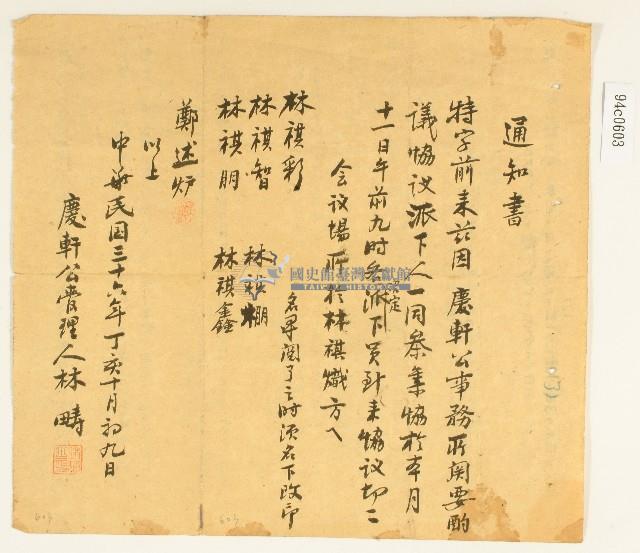 通知書
特字前来茲因 慶軒公事務所関要酌
議協议派下人一同叅集協於本月
十一日午前九时各派下定員到来協议切二
会议場所於林祺熾方へ
名尋閱了之时须名下改印
林祺彩
林祺智 林祺棚
林祺朋 林祺鑫
鄭述炉
以上
中華民国三十六年丁亥十月初九日
慶軒公管理人林疇
國史館臺灣文獻館
TAIWAN HISTORICA
94c0603
603
603